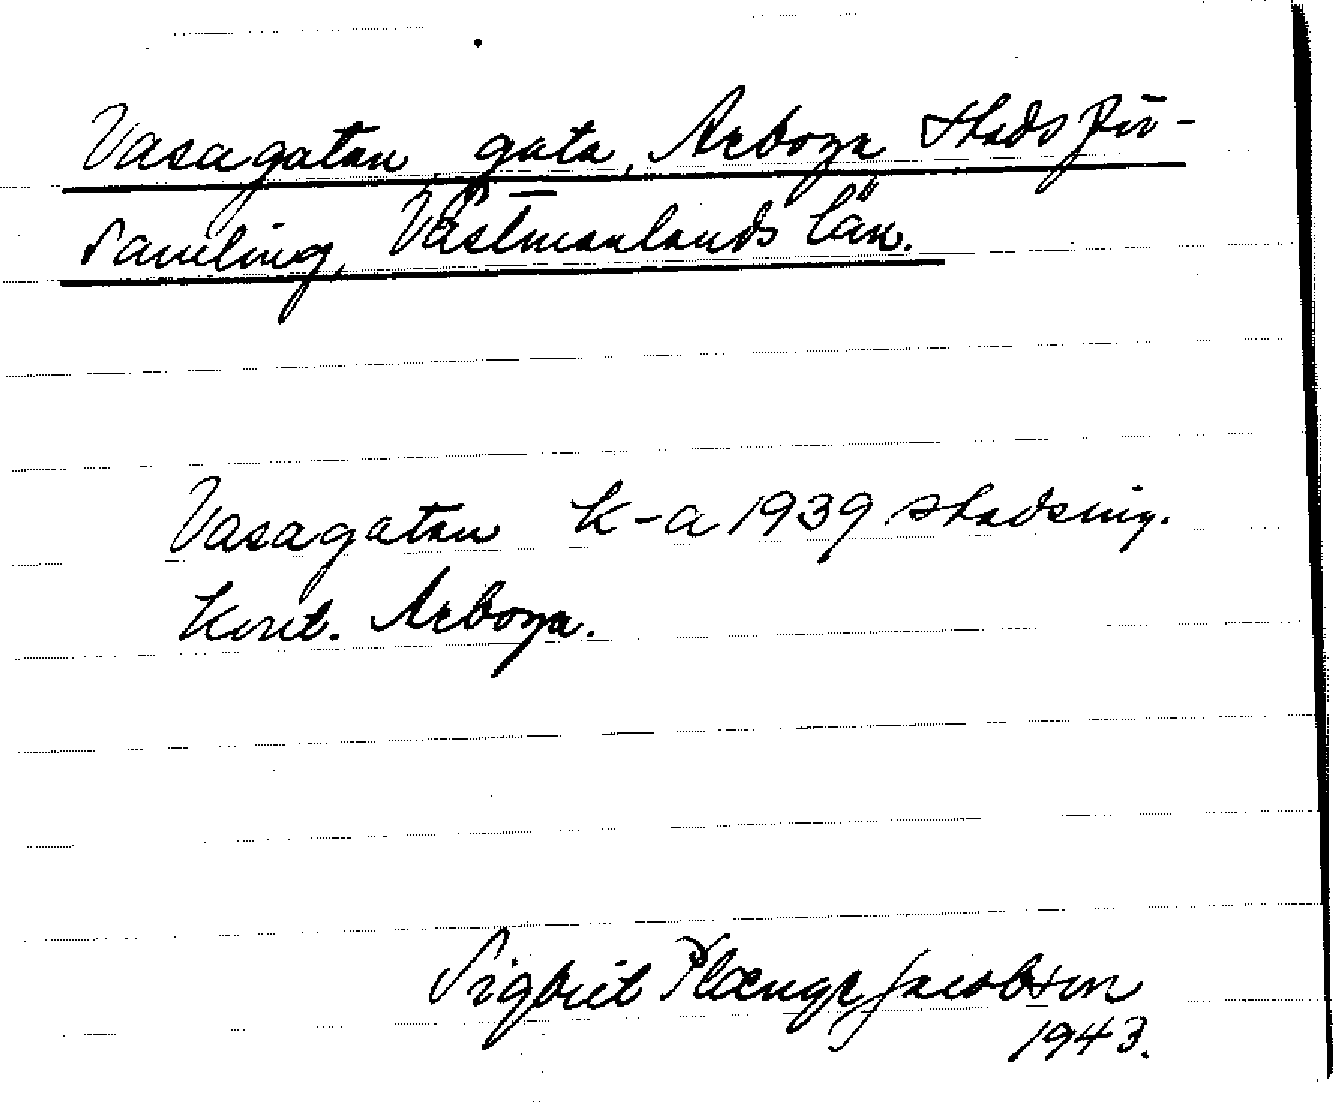 Vasagatan, gata, Arboga stadsför-
samling, Västmanlands län.
Vasagatan k-a 1939 stadsing.
kont. Arboga.
Sigbrit Plænge Jacobson
1943.